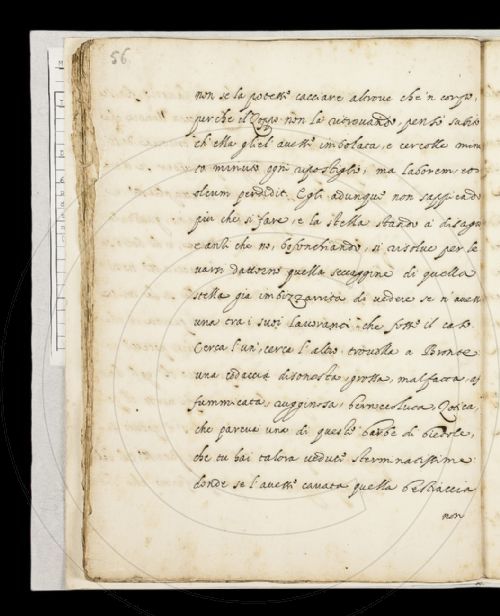 56
non se la potett.º cacciare altroue che'n corpo,
perche il Zoppo non la ritrouando, pensò subito
ch'ella gliel'auess.º imbolata, e cercolle minu
to minuto ogni ripostiglio, ma laborem, et
oleum perdidit. Egli adunque non sappiendo
più che si fare, e la Stella stando a disagio
e anzi che no, bofonchiando, si risolue per le
uarsi dattorno quella seccaggine di quella
Stella già imbizzarrita di uedere se n'auess
una tra i suoi lauoranti che foss.º il caso.
Cerca l'un, cerca l'altro, trouolla a Bronte
una codaccia disonesta, grossa, malfatta, af
fummicata, rugginosa, bernoccoluta, Zotica,
che pareua una di queste barbe di bietole,
che tu hai talora uedute sterminatissime
donde se l'auess.º cauata quella bestiaccia
non